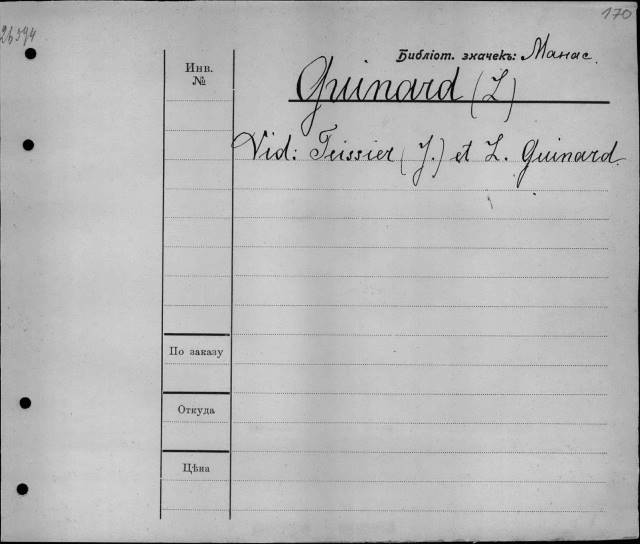 170
26594
Библіот. значекъ: Манас.
Инв.
№
Guinard (L)
Vid: Teissier (J.) et L. Guinard.
По заказу
Откуда
Цѣна